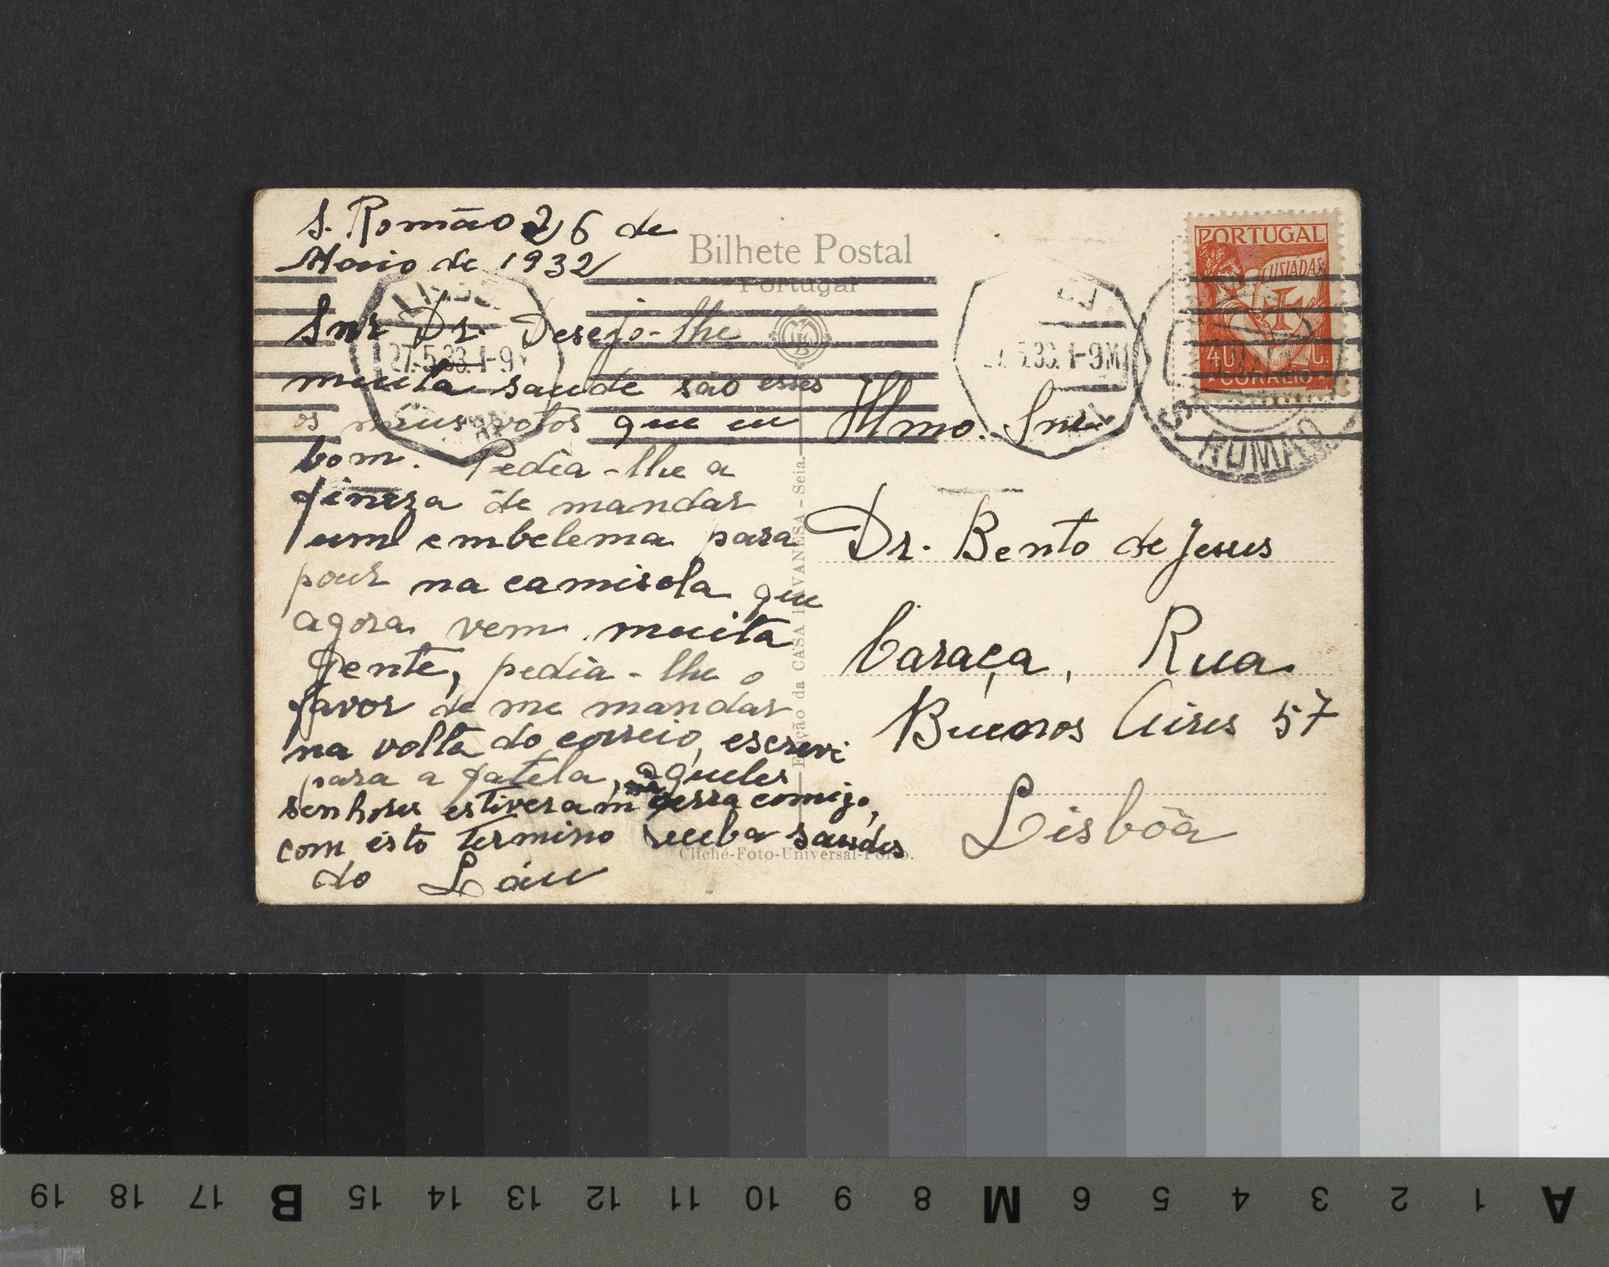 S. Romão 26 de
Maio de 1932
Snr Dr. Desejo-lhe
muita saude são esses
os meus votos que eu
bom. Pedia-lhe a
fineza de mandar
um embelema para
pour na camisola que
agora vem muita
gente, pedia-lhe o
favor de me mandar
na volta do correio, escrevi
para a Estrela, aqueles
senhores estiveram na serra comigo,
com isto termino receba saudes
do Láu
Bilhete Postal
Portugal
Edição da CASA HAVANESA - Seia.
Cliché-Foto-Universal-Porto.
27.5.33.1-9
5.33.1-9M
PORTUGAL
LUSIADAS
40 C.
CORREIO
ROMÃO
Illmo. Snr.
Dr. Bento de Jesus
Caraça, Rua
Buenos Aires 57
Lisbôa
19 18 17 B 15 14 13 12 11 10 9 8 M 6 5 4 3 2 1 A